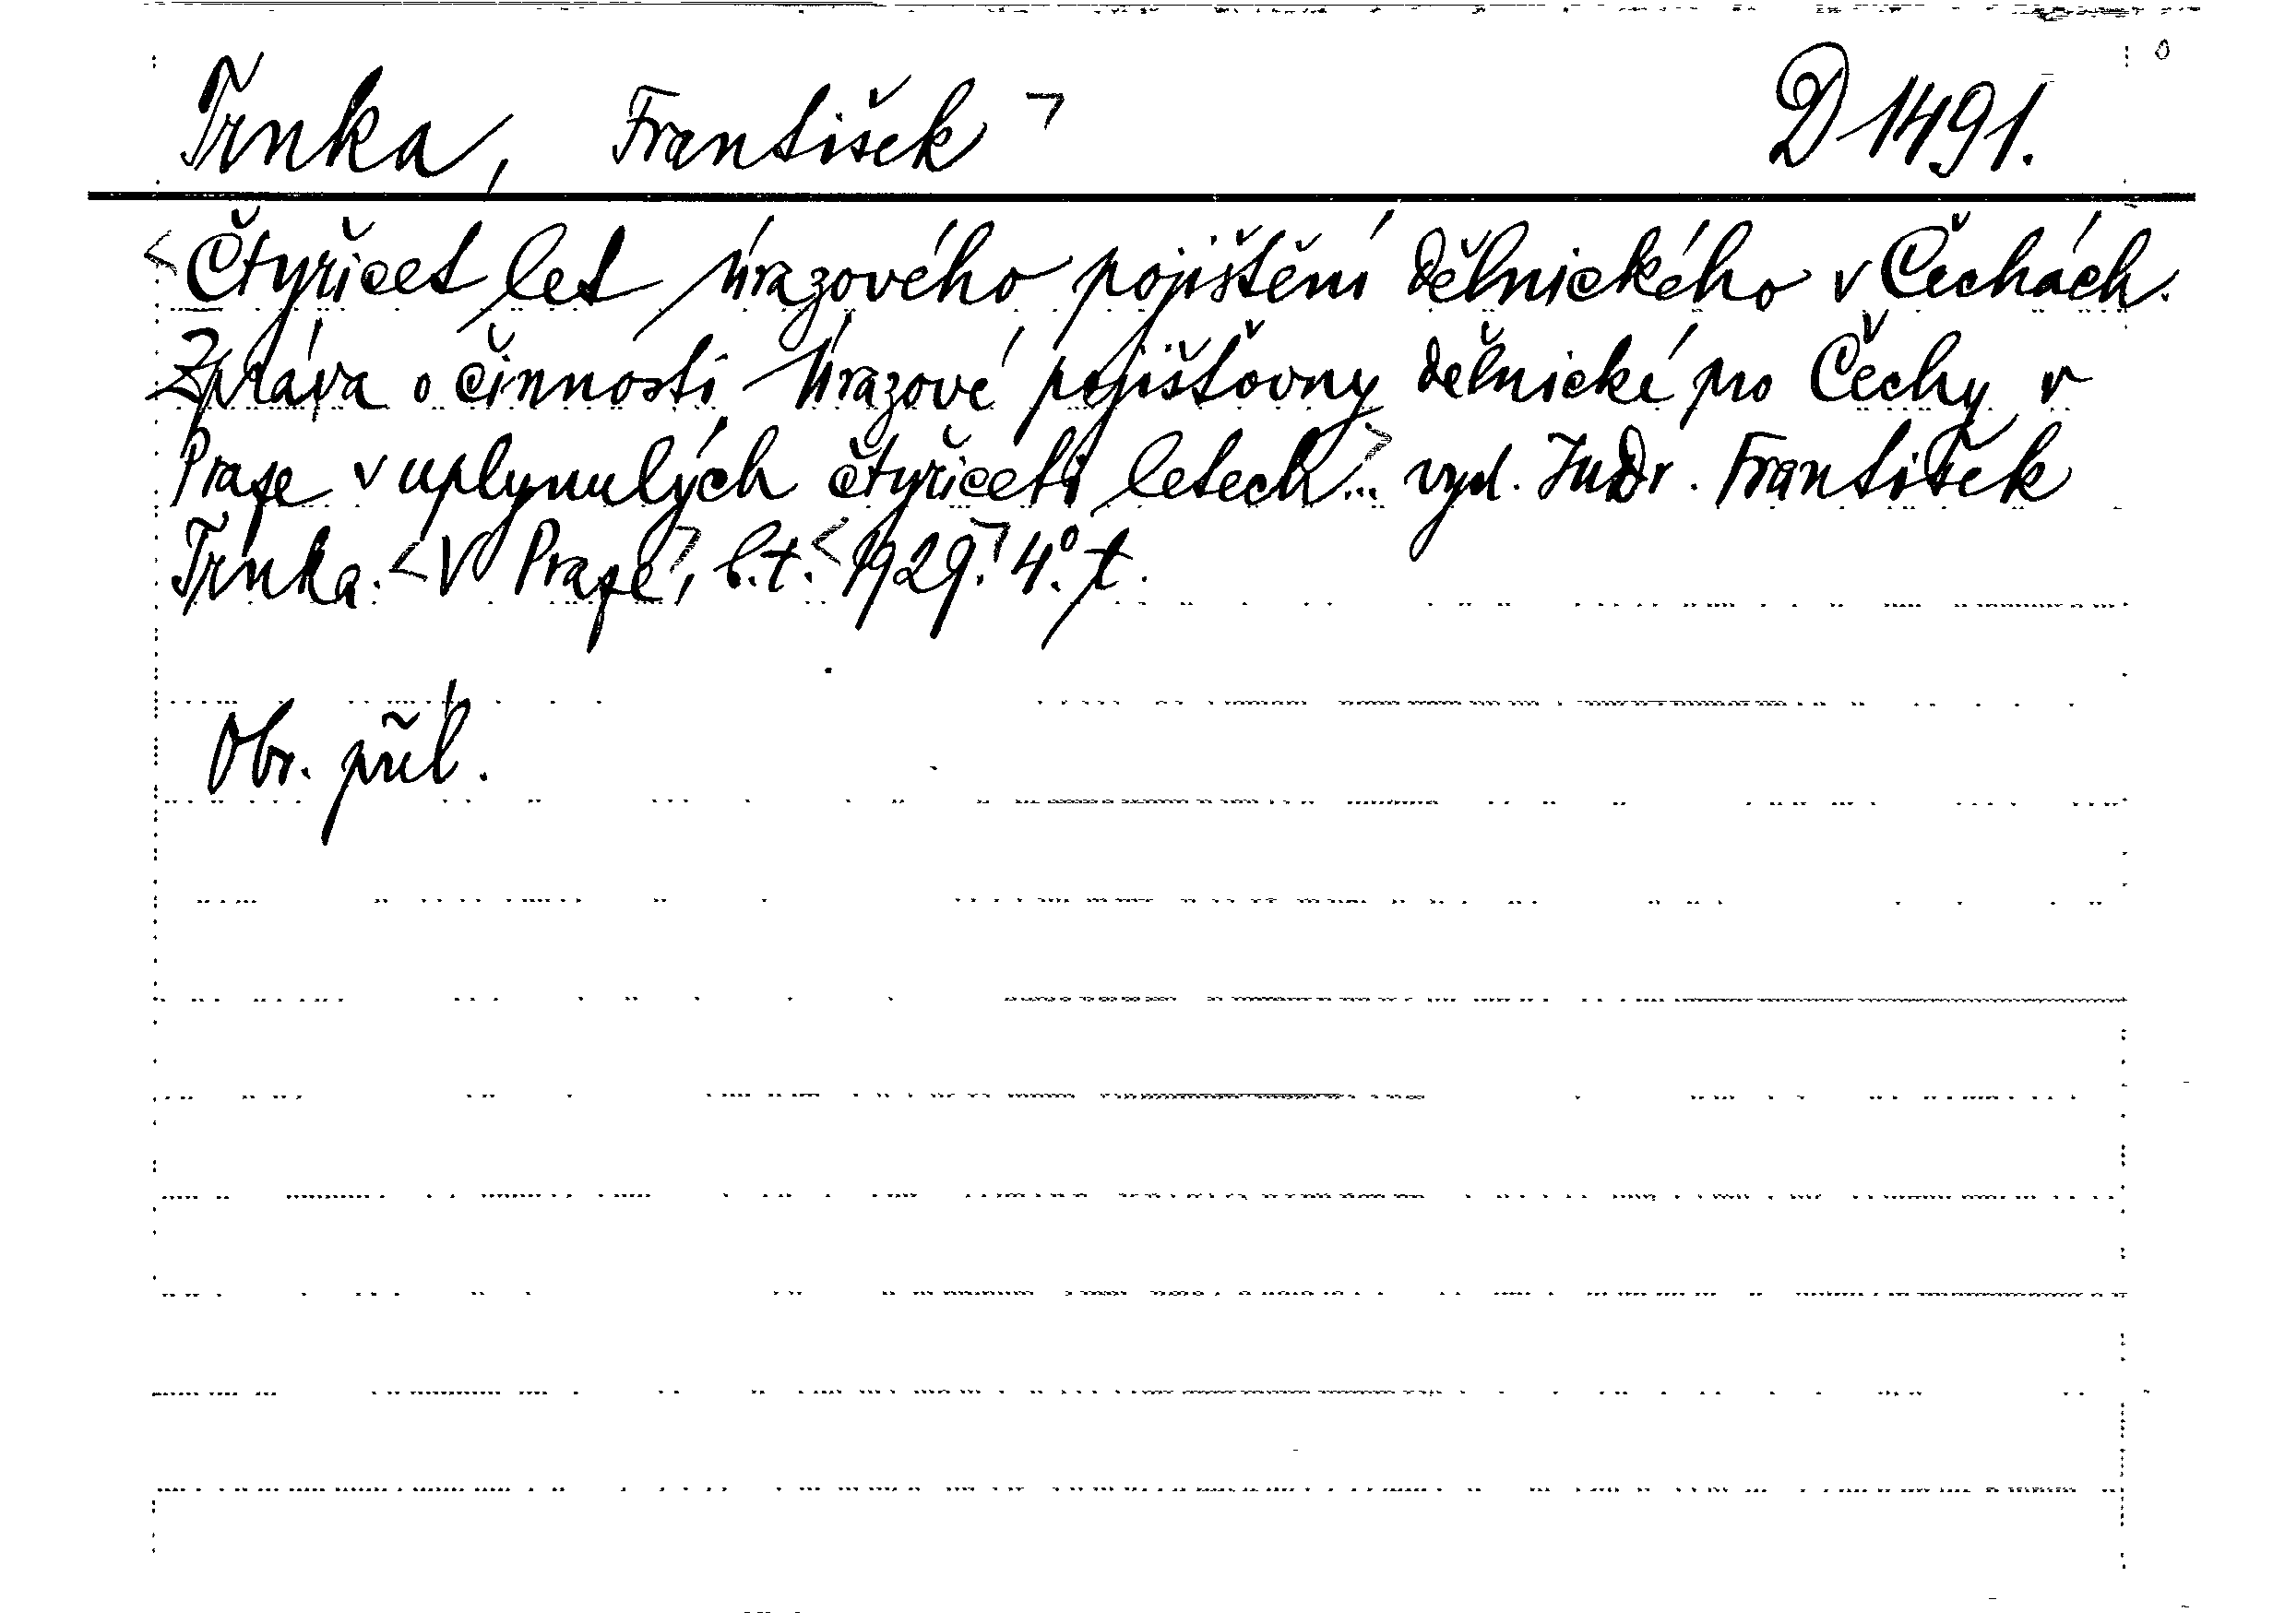 Trnka, František ¬ D 1491.
<Čtyřicet let úrazového pojištění dělnického v Čechách.
Zpráva o činnosti Úrazové pojišťovny dělnické pro Čechy v
Praze v uplynulých čtyřiceti letech...> vyd. JuDr. František
Trnka. <V Praze>, b.t. <1929.> 4°. t.
Obr. příl.